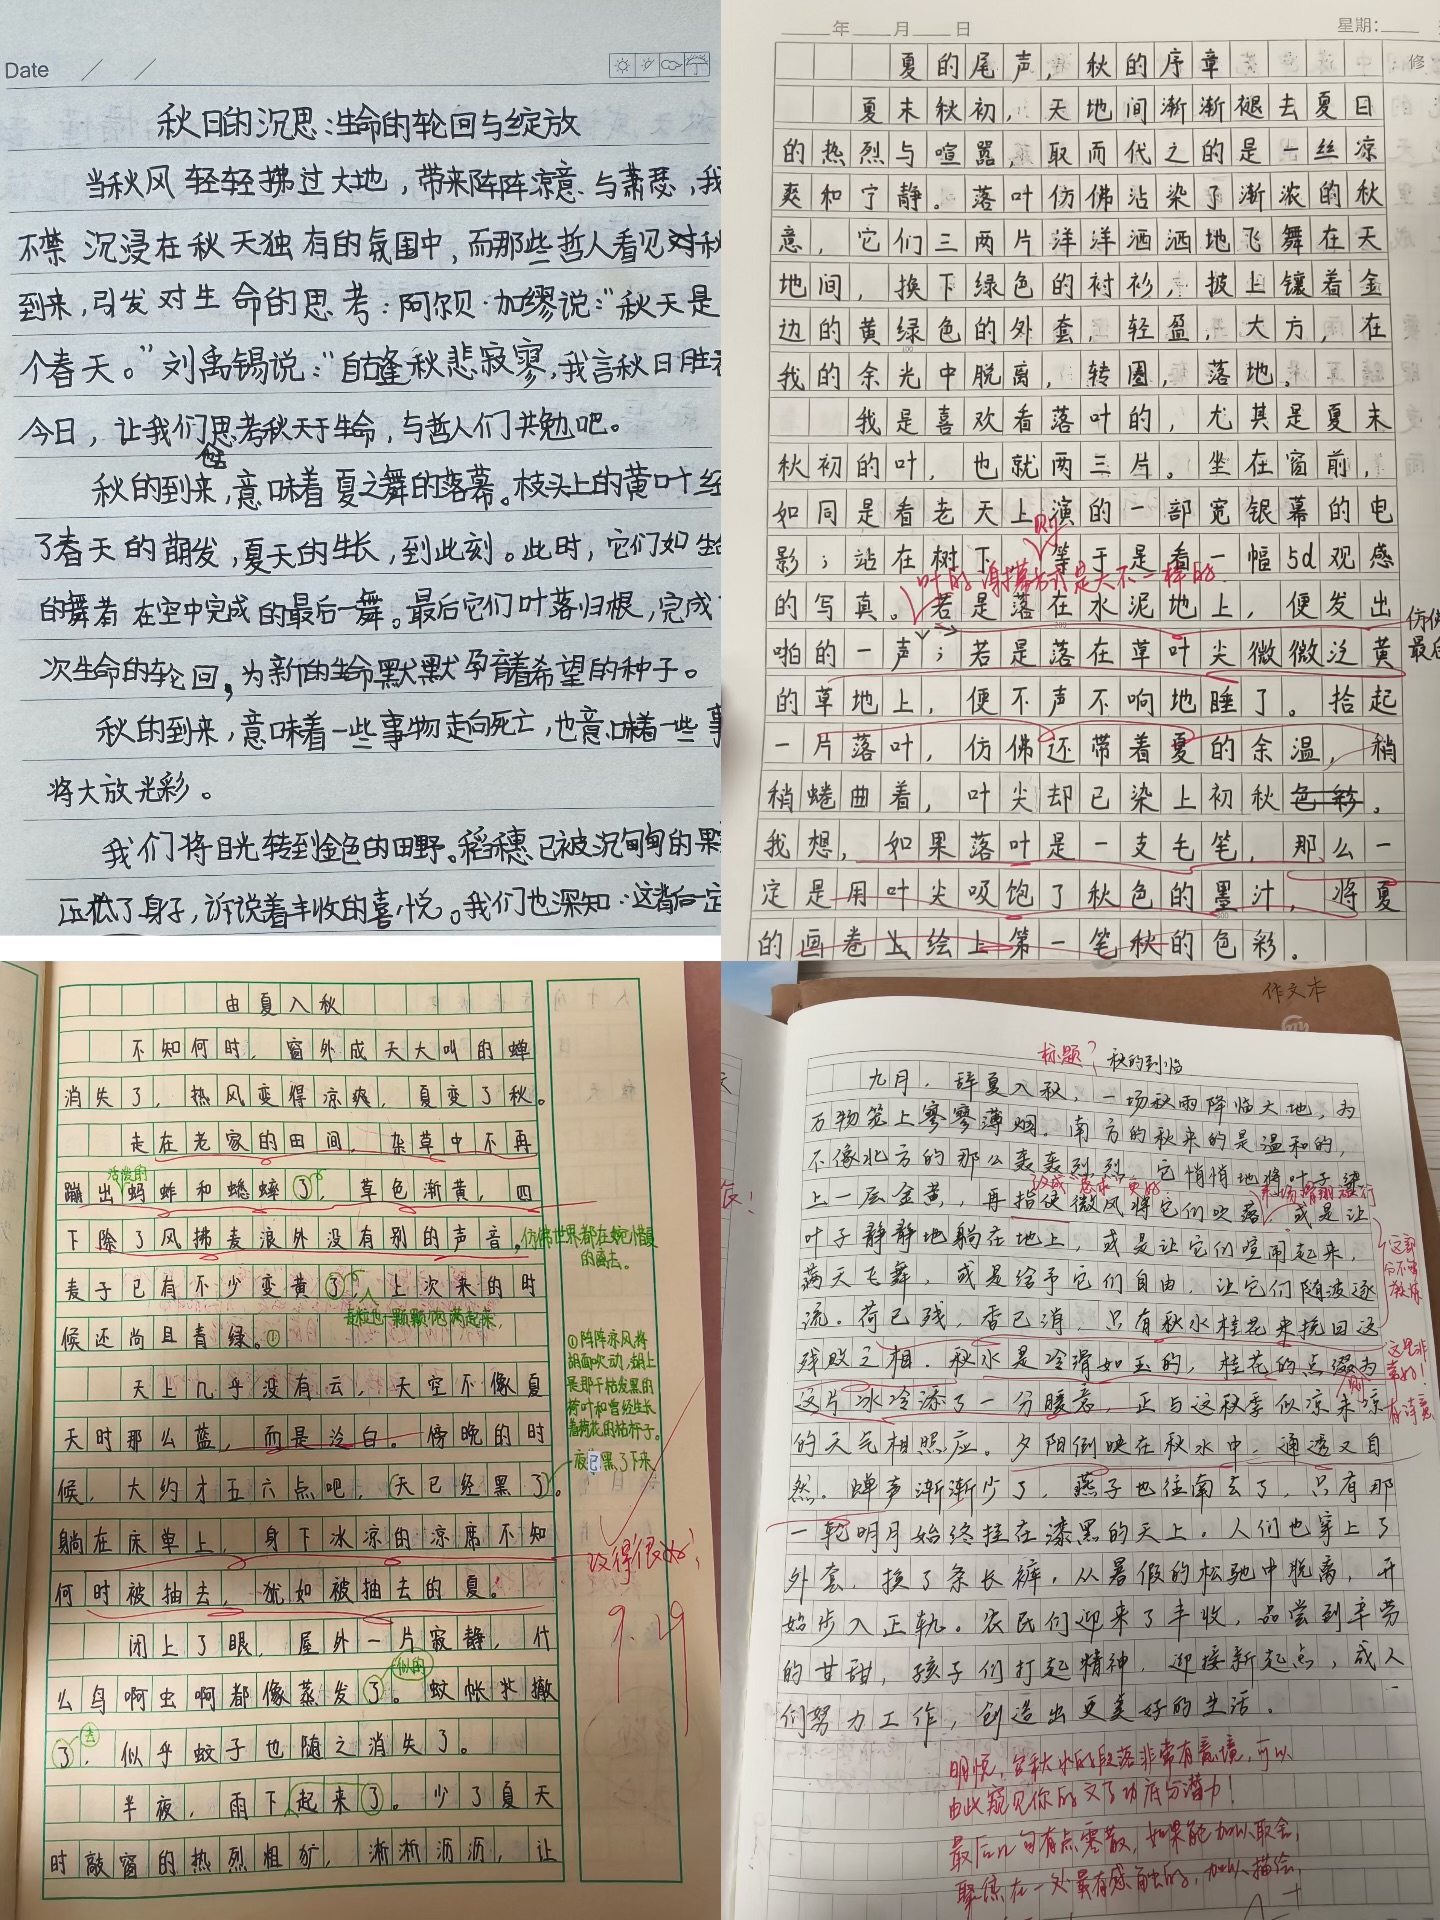 Date
秋日的沉思:生命的轮回与绽放
当秋风轻轻拂过大地，带来阵阵凉意与萧瑟，我
不禁沉浸在秋天独有的氛围中，而那些哲人看见对秋
到来，引发对生命的思考：阿尔贝·加缪说："秋天是
个春天。"刘禹锡说："自古逢秋悲寂寥，我言秋日胜春
今日，让我们思考秋天于生命，与哲人们共勉吧。
秋的到来，意味着夏之舞的落幕。枝头上的黄叶经
了春天的萌发，夏天的生长，到此刻。此时，它们如生命
的舞者在空中完成的最后一舞。最后它们叶落归根，完成
次生命的轮回，为新的生命默默孕育着希望的种子。
秋的到来，意味着一些事物走向死亡，也意味着一些事
将大放光彩。
我们将目光转到金色的田野。稻穗已被沉甸甸的果
压低了身子，诉说着丰收的喜悦。我们也深知，这背后一定
年 月 日 星期:
修
夏的尾声，秋的序章
夏末秋初，天地间渐渐褪去夏日
的热烈与喧嚣，取而代之的是一丝凉
爽和宁静。落叶仿佛沾染了渐浓的秋
意，它们三两片洋洋洒洒地飞舞在天
地间，换下绿色的衬衫，披上镶着金
边的黄绿色的外套，轻盈，大方，在
我的余光中脱离，转圈，落地。
我是喜欢看落叶的，尤其是夏末
秋初的叶，也就两三片。坐在窗前，
如同是看老天上演的一部宽银幕的电
则
影；站在树下，等于是看一幅5d观感
叶的谢幕方式是大不一样的.
的写真。若是落在水泥地上，便发出
仿佛
啪的一声；若是落在草叶尖微微泛黄
最后
的草地上，便不声不响地睡了。拾起
一片落叶，仿佛还带着夏的余温，稍
稍蜷曲着，叶尖却已染上初秋色彩。
我想，如果落叶是一支毛笔，那么一
定是用叶尖吸饱了秋色的墨汁，将夏
的画卷上绘上第一笔秋的色彩。
由夏入秋
不知何时，窗外成天大叫的蝉
消失了，热风变得凉爽，夏变了秋。
走在老家的田间，杂草中不再
活泼的
蹦出蚂蚱和蟋蟀了，草色渐黄，四
下除了风拂麦浪外没有别的声音，
仿佛世界都在惋惜夏
的离去。
麦子已有不少变黄了，上次来的时
麦粒也一颗颗饱满起来，
候还尚且青绿。①
①阵阵凉风将
湖面吹动，湖上
是那干枯发黑的
荷叶和曾经生长
着荷花的枯杆子。
天上几乎没有云，天空不像夏
天时那么蓝，而是泛白。傍晚的时
候，大约才五六点吧，天已经黑了。
夜已黑了下来
躺在床单上，身下冰凉的凉席不知
改得很好！
何时被抽去，犹如被抽去的夏。
9.29
闭上了眼，屋外一片寂静，什
似的
么鸟啊虫啊都像蒸发了。蚊帐抖撤
去
了，似乎蚊子也随之消失了。
半夜，雨下起来了。少了夏天
时敲窗的热烈粗犷，淅淅沥沥，让
作文本
标题？ 秋的到临
九月，辞夏入秋，一场秋雨降临大地，为
万物笼上寥寥薄烟。南方的秋来的是温和的，
不像北方的那么轰轰烈烈，它悄悄地将叶子染
上一层金黄，再指使微风将它们吹落，或是让
叶子静静地躺在地上，或是让它们喧闹起来，
满天飞舞，或是给予它们自由，让它们随波逐
流。荷已残，香已消，只有秋水桂花来挽回这
残败之相。秋水是冷滑如玉的，桂花的点缀为
这片冰冷添了一分暖意，正与这秋季似凉未凉
的天气相照应。夕阳倒映在秋水中，通透又自
然。蝉声渐渐少了，燕子也往南去了，只有那
一轮明月始终挂在漆黑的天上。人们也穿上了
外套，换了条长裤，从暑假的松驰中脱离，开
始步入正轨。农民们迎来了丰收，品尝到辛劳
的甘甜，孩子们打起精神，迎接新起点，成人
们努力工作，创造出更美好的生活。
这里非
常好！
有诗意
明悦，写秋水的段落非常有意境，可以
由此窥见你的文字功底与潜力！
最后几句有点零散，如果能加以取舍，
聚焦在一处最有感触的，加以描绘，